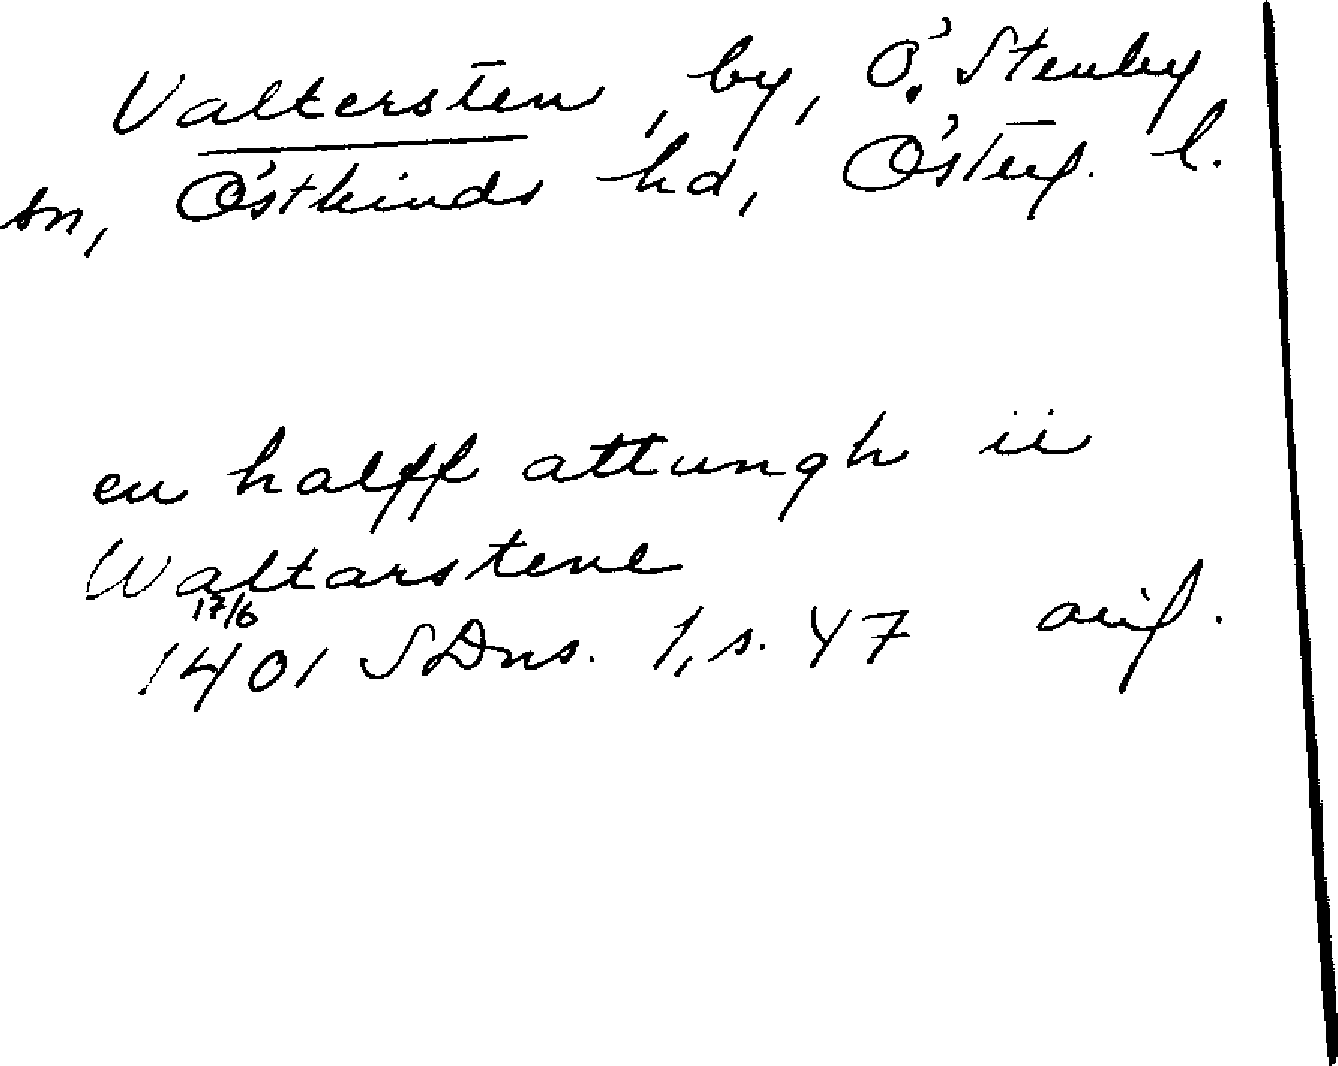 Valtersten, by, Ö. Stenby
sn, Östkinds hd, Österg. l.
en halff attungh ii
Waltarstene
17/6
1401 SDns. 1, s. 47 orig.